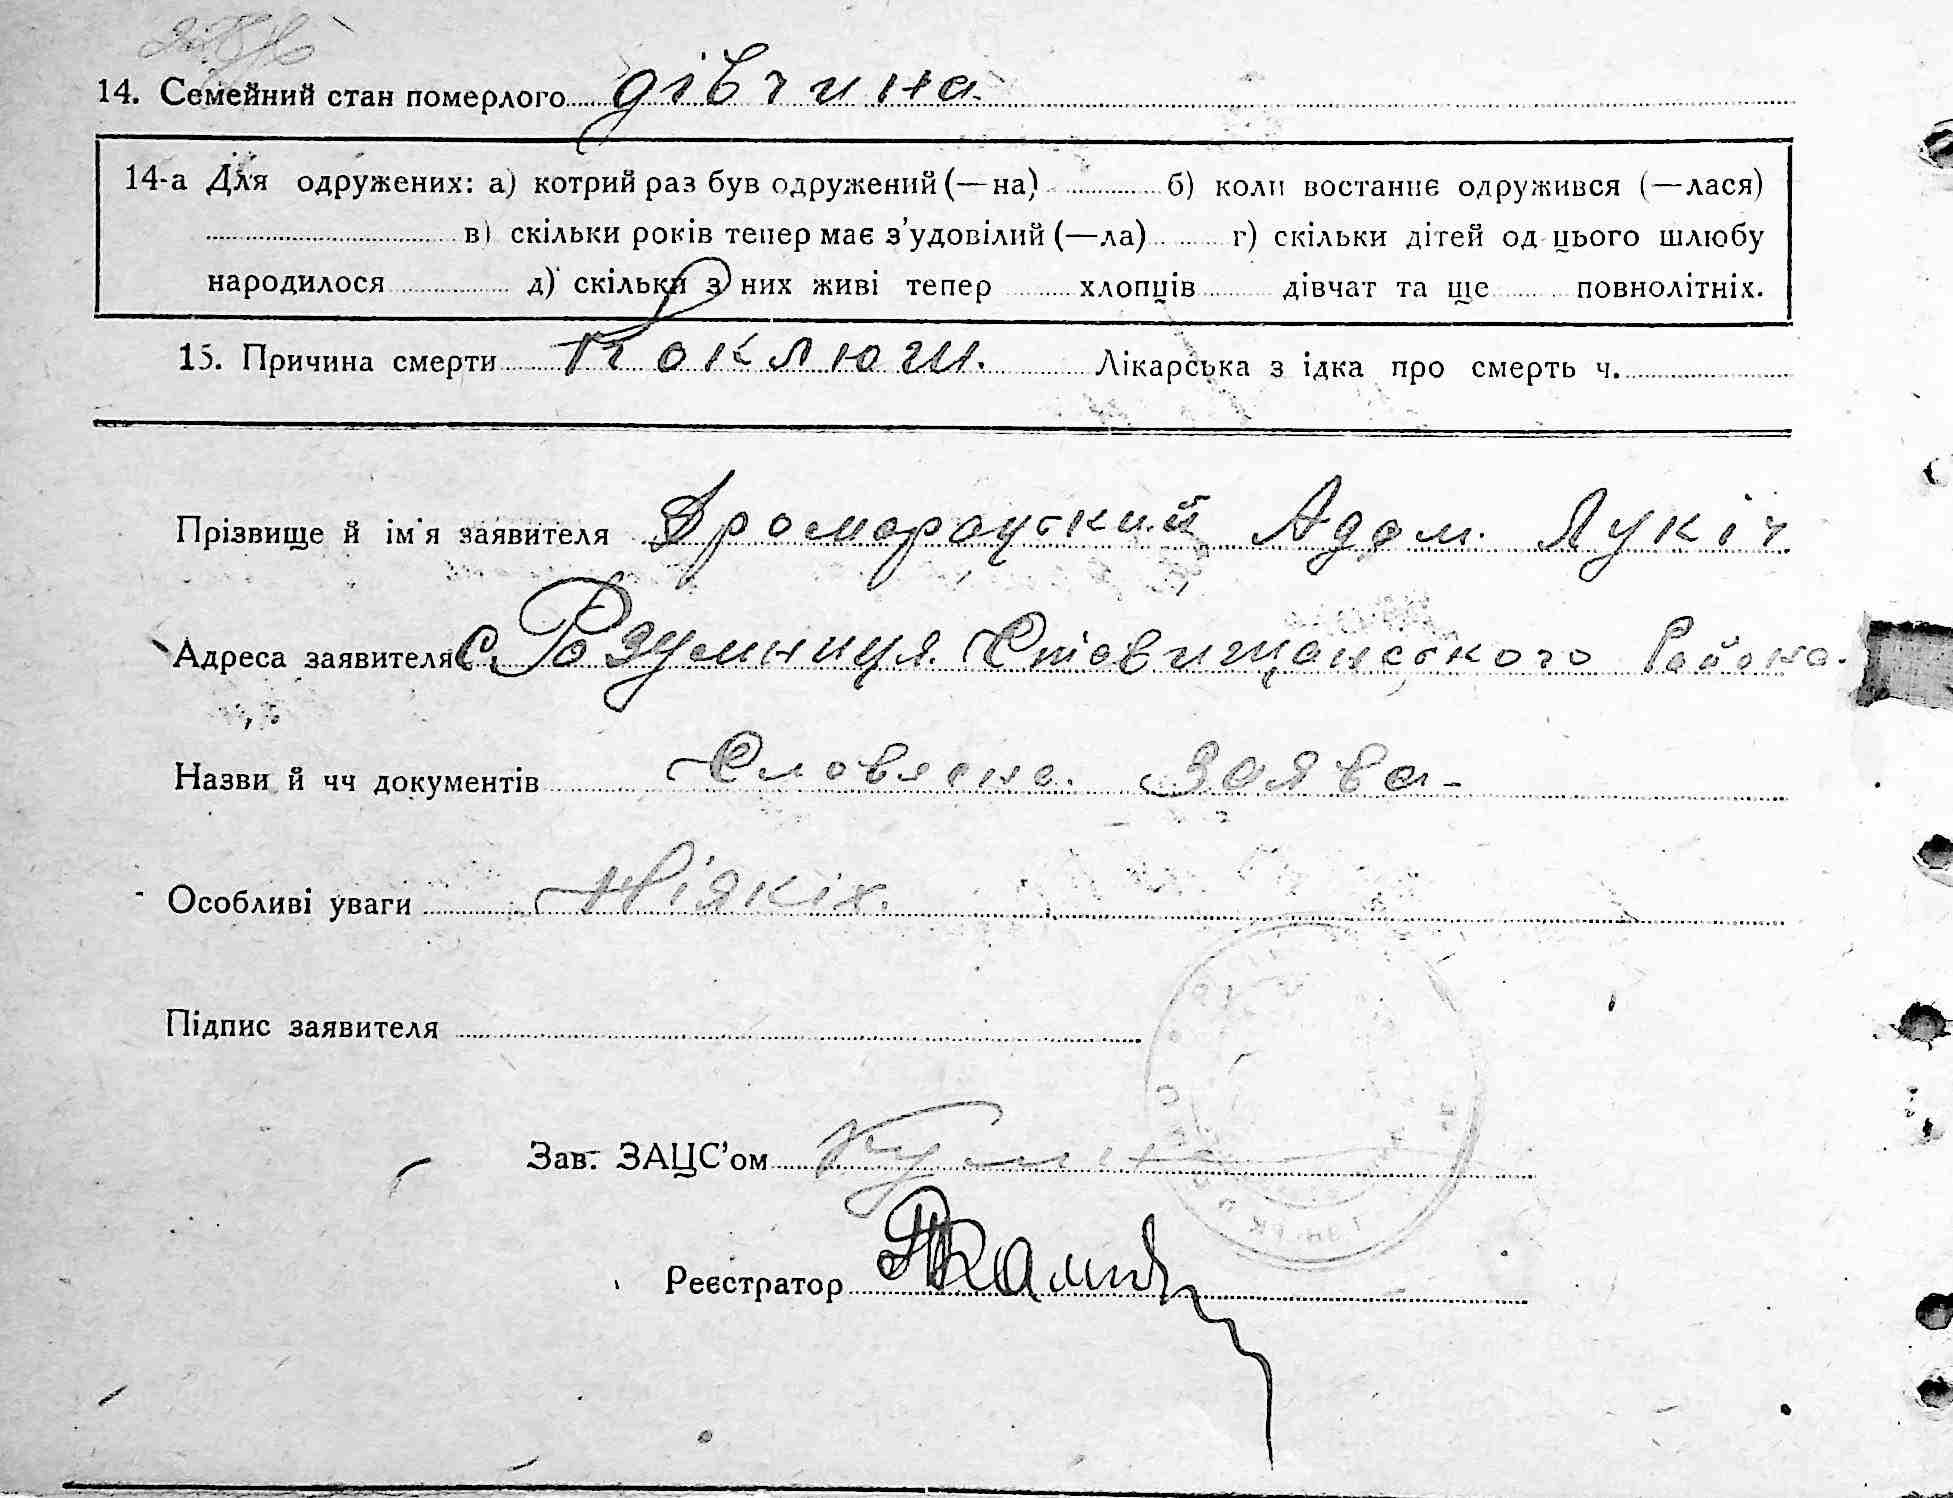 14. Семейний стан померлого дівчина
14-а Для одружених: а) котрий раз був одружений (—на) б) коли востаннє одружився (—лася)
в) скільки років тепер має з’удовілий (—ла) г) скільки дітей од цього шлюбу
народилося д) скільки з них живі тепер хлопців дівчат та ще повнолітніх.
15. Причина смерти Коклюш. Лікарська з ідка про смерть ч.
Прізвище й ім'я заявителя Адам Лукіч
Адреса заявителя С. Розумниця Ставищанського Району.
Назви й чч документів Словесна заява
Особливі уваги Ніякіх.
Підпис заявителя
Зав. ЗАЦС’ом
Реєстратор